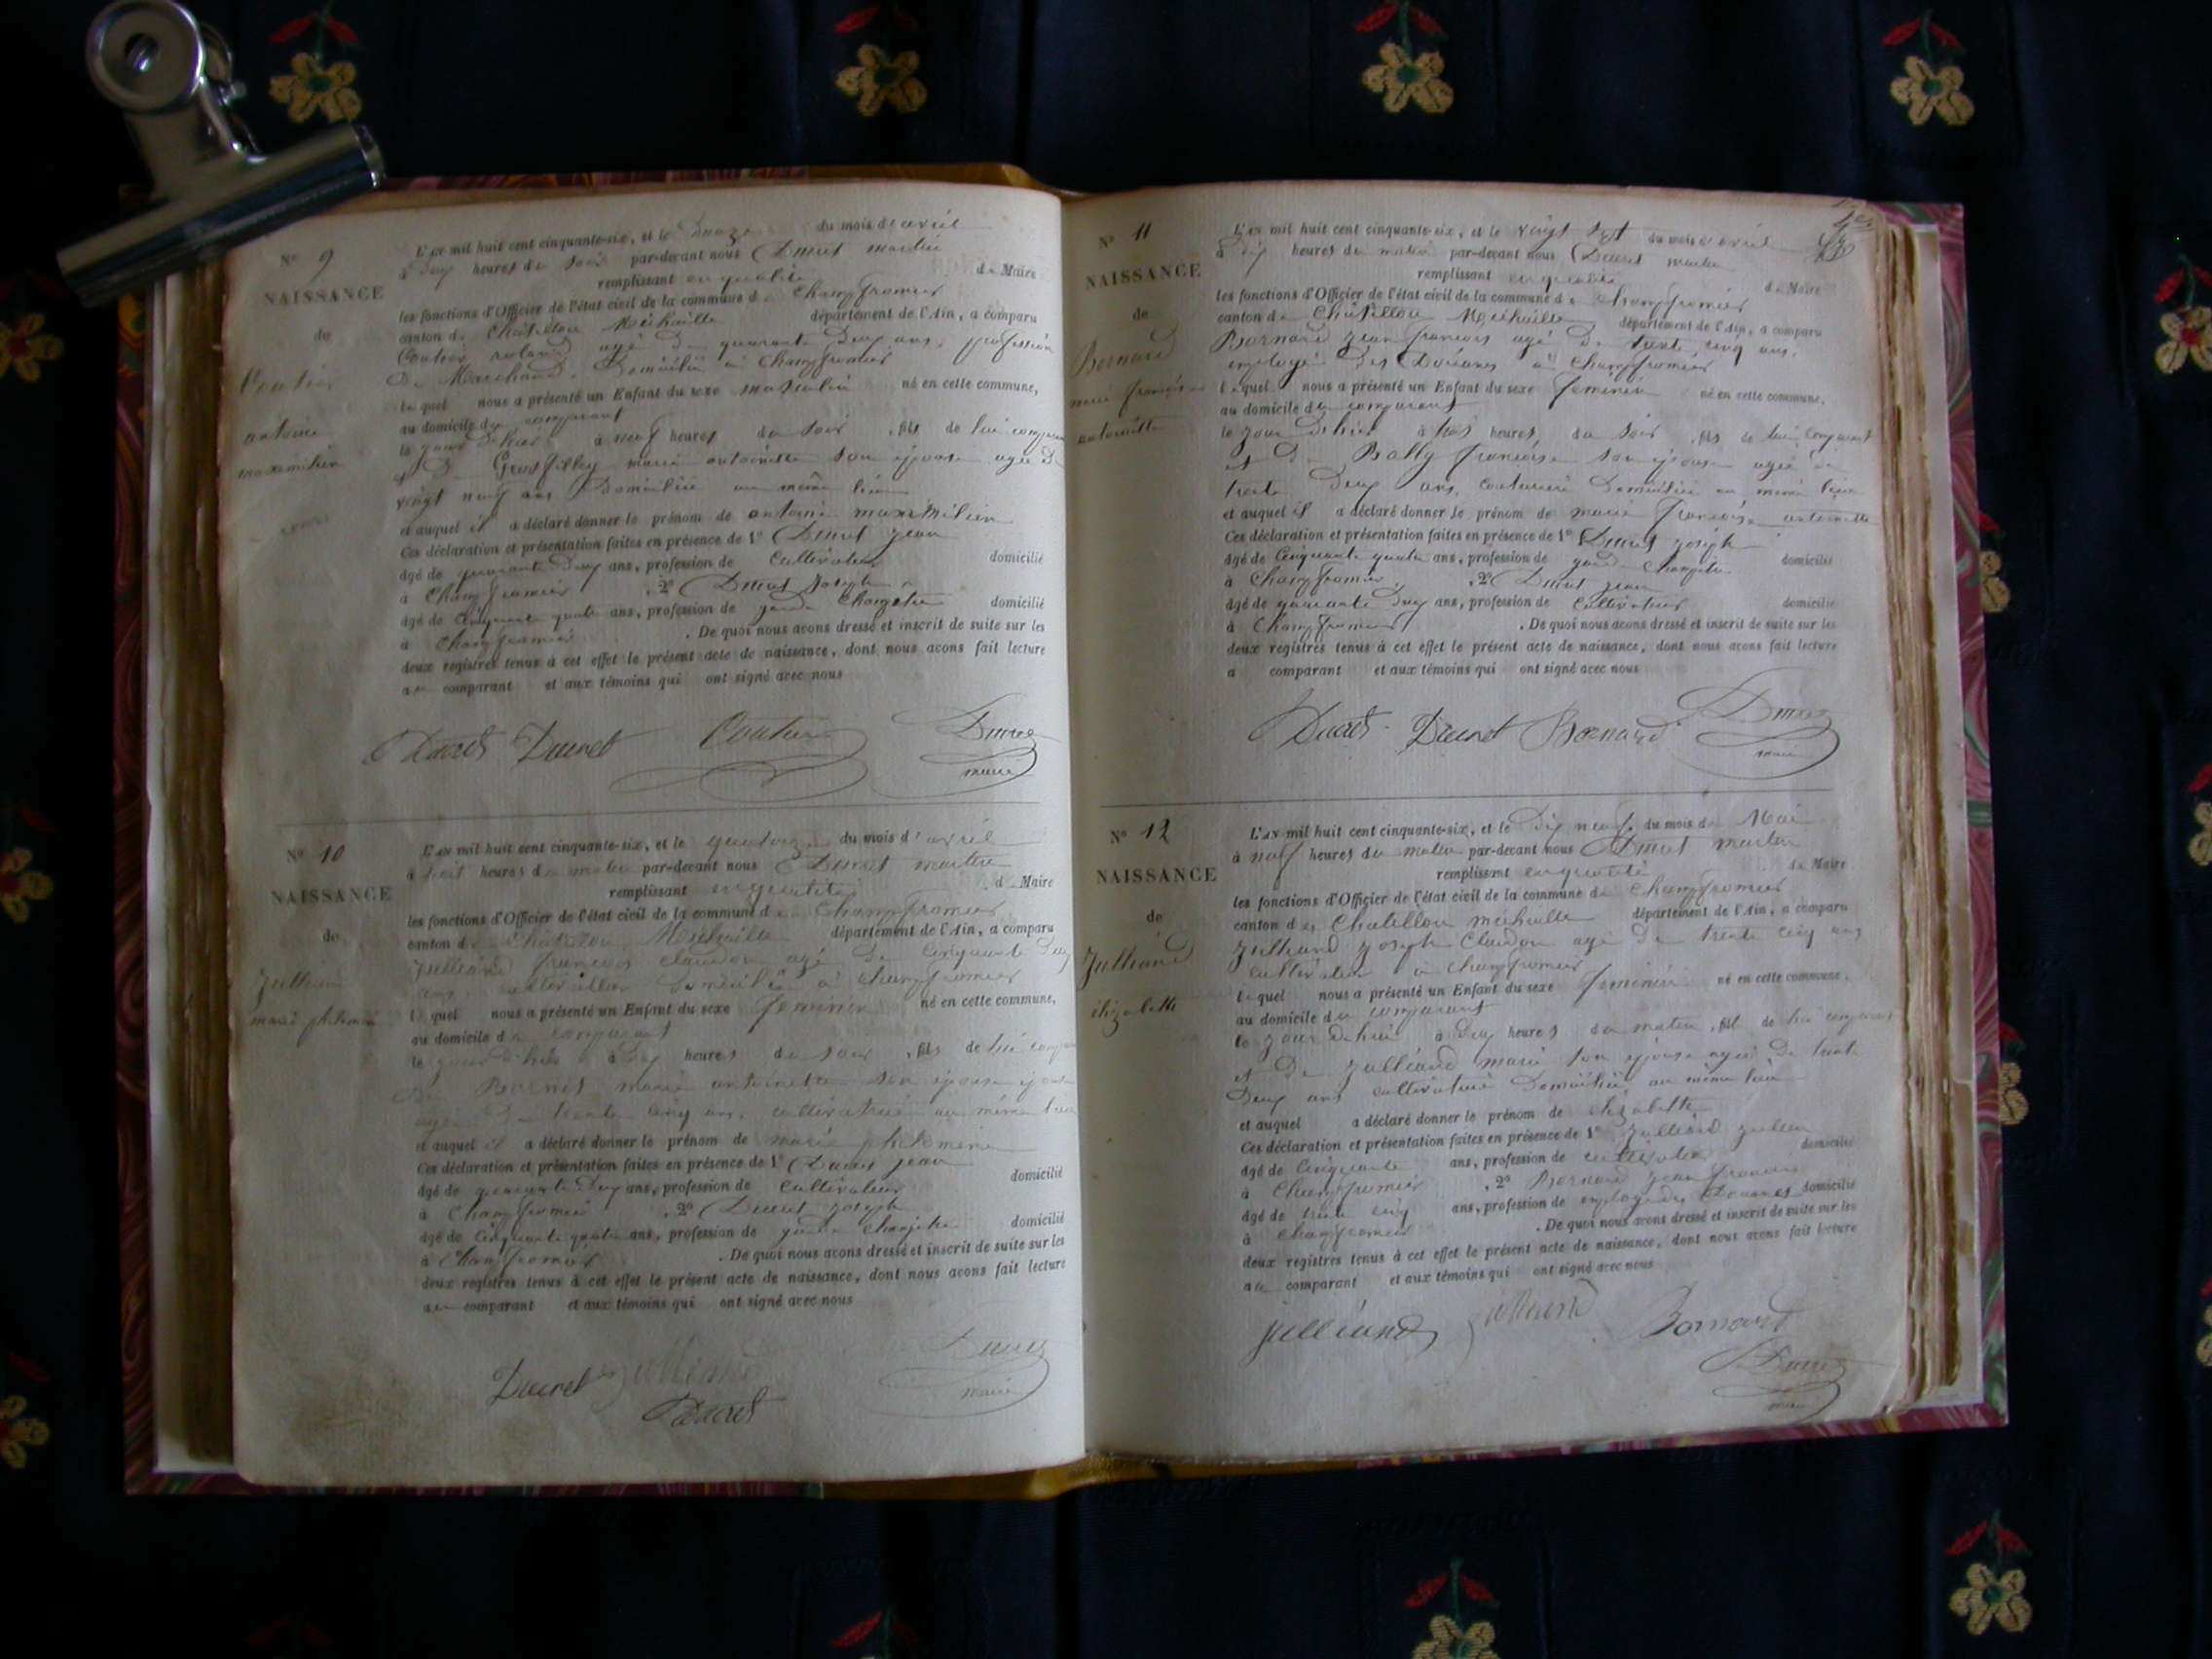 N° 9
NAISSANCE
de
Coutier
antoine
maximilien
L'an mil huit cent cinquante-six, et le douze du mois d'avril
à deux heures du soir par-devant nous Ducret martin
remplissant en qualité de Maire
les fonctions d'Officier de l'état civil de la commune de Champfromier
canton de Châtillon Michaille département de l'Ain, a comparu
Coutier roland agé de quarante deux ans, profession
de Marchand, Domicilié à Champfromier
lequel nous a présenté un Enfant du sexe masculin né en cette commune,
au domicile du comparant
le jour d'hier à neuf heures du soir, fils de lui comparant
et de Grosfilley marie antoinette son épouse agée de
vingt neuf ans Domiciliée au même lieu
et auquel il a déclaré donner le prénom de antoine maximilien
Ces déclaration et présentation faites en présence de 1° Ducret jean
âgé de quarante deux ans, profession de Cultivateur domicilié
à Champfromier, 2° Ducret Joseph
âgé de Cinquante quatre ans, profession de garde Champetre domicilié
à Champfromier. De quoi nous avons dressé et inscrit de suite sur les
deux registres tenus à cet effet le présent acte de naissance, dont nous avons fait lecture
au comparant et aux témoins qui ont signé avec nous
Ducret Ducret Coutier Ducret
maire
N° 10
NAISSANCE
de
Julliand
marie philomène
L'an mil huit cent cinquante-six, et le quatorze du mois d'avril
à huit heures du matin par-devant nous Ducret martin
remplissant en qualité de Maire
les fonctions d'Officier de l'état civil de la commune de Champfromier
canton de Châtillon Michaille département de l'Ain, a comparu
Julliand françois claudon agé de Cinquante deux
ans, cultivateur Domicilié à Champfromier
lequel nous a présenté un Enfant du sexe feminin né en cette commune,
au domicile du comparant
le jour d'hier à dix heures du soir, fils de lui comparant
de marie antoinette son épouse
agée de trente cinq ans, cultivatrice au même lieu
et auquel il a déclaré donner le prénom de marie philomène
Ces déclaration et présentation faites en présence de 1° Ducret jean
âgé de quarante deux ans, profession de Cultivateur domicilié
à Champfromier, 2° Ducret Joseph
âgé de Cinquante quatre ans, profession de garde Champetre domicilié
à Champfromier. De quoi nous avons dressé et inscrit de suite sur les
deux registres tenus à cet effet le présent acte de naissance, dont nous avons fait lecture
au comparant et aux témoins qui ont signé avec nous
Ducret Julliand Ducret
maire
Ducret
N° 11
NAISSANCE
de
Bornard
marie françoise
antoinette
L'an mil huit cent cinquante-six, et le vingt sept du mois d'avril
à dix heures du matin par-devant nous Ducret martin
remplissant en qualité de Maire
les fonctions d'Officier de l'état civil de la commune de Champfromier
canton de Châtillon Michaille département de l'Ain, a comparu
Bornard jean françois agé de trente cinq ans,
employé des Douanes à Champfromier
lequel nous a présenté un Enfant du sexe feminin né en cette commune,
au domicile du comparant
le jour d'hier à trois heures du soir, fils de lui comparant
et de Bally françoise son épouse agée de
trente deux ans, couturière Domiciliée au même lieu
et auquel il a déclaré donner le prénom de marie françoise antoinette
Ces déclaration et présentation faites en présence de 1° Ducret joseph
âgé de Cinquante quatre ans, profession de garde Champetre domicilié
à Champfromier, 2° Ducret jean
âgé de quarante deux ans, profession de Cultivateur domicilié
à Champfromier. De quoi nous avons dressé et inscrit de suite sur les
deux registres tenus à cet effet le présent acte de naissance, dont nous avons fait lecture
a comparant et aux témoins qui ont signé avec nous
Ducret Ducret Bornard Ducret
maire
N° 12
NAISSANCE
de
Julliand
élizabette
L'an mil huit cent cinquante-six, et le dix neuf du mois de Mai
à neuf heures du matin par-devant nous Ducret martin
remplissant en qualité de Maire
les fonctions d'Officier de l'état civil de la commune de Champfromier
canton de Chatillon michaille département de l'Ain, a comparu
Julliand Joseph Claudon agé de trente cinq ans
cultivateur à Champfromier
lequel nous a présenté un Enfant du sexe feminin né en cette commune,
au domicile du comparant
le jour d'hier à deux heures du matin, fils de lui comparant
et de Julliand marie son épouse agée de trente
deux ans cultivatrice Domiciliée au même lieu
et auquel a déclaré donner le prénom de élizabette
Ces déclaration et présentation faites en présence de 1° Julliand julien
âgé de Cinquante ans, profession de cultivateur domicilié
à Champfromier, 2° Bornard jean françois
âgé de trente cinq ans, profession de employé des Douanes domicilié
à Champfromier. De quoi nous avons dressé et inscrit de suite sur les
deux registres tenus à cet effet le présent acte de naissance, dont nous avons fait lecture
au comparant et aux témoins qui ont signé avec nous
julliand julliand Bornard
Ducret
maire